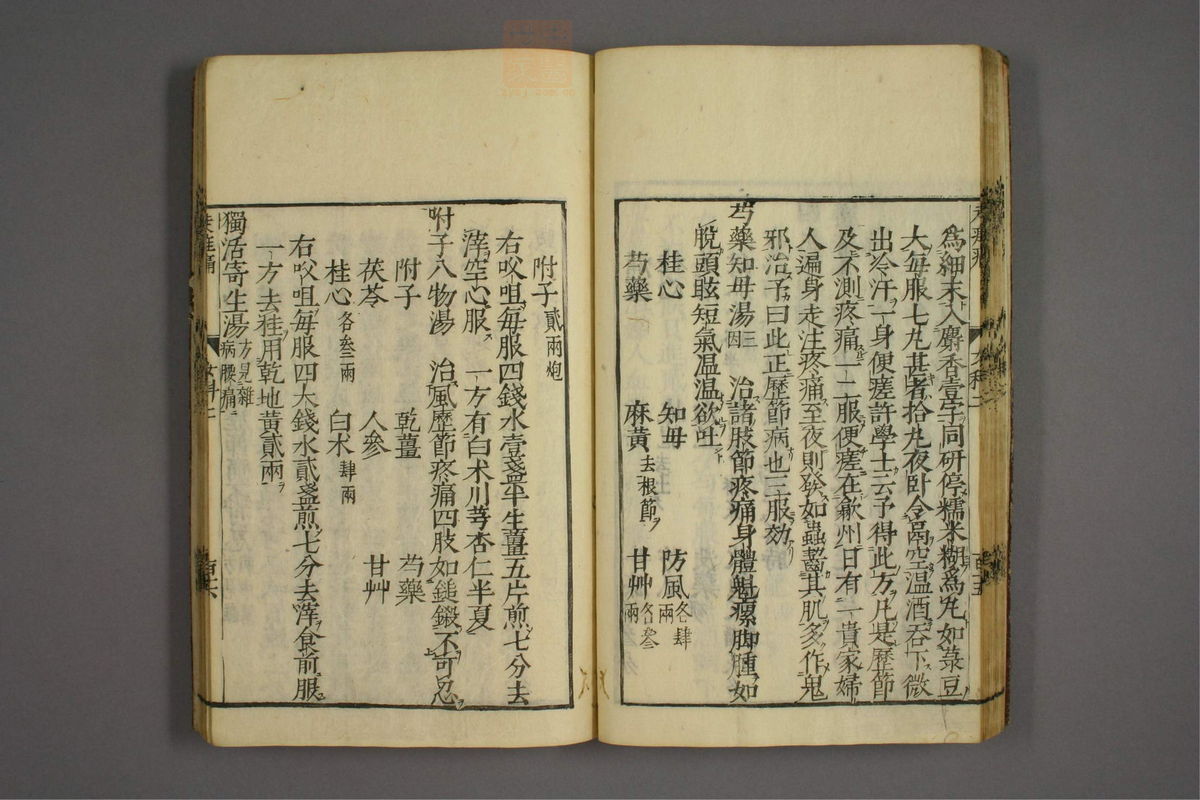 為細末入麝香壹字同研停糯米糊為丸如菉豆
大每服七丸甚者拾丸夜卧令鬲空温酒吞下微
出冷汗一身便瘥許學士云予得此方凡是歷節
及不測疼痛一二服便瘥在歙州日有一貴家婦
人遍身走注疼痛至夜則發如蟲齧其肌多作鬼
邪治予曰此正歷節病也三服効
芍藥知毋湯三因 治諸肢節疼痛身體魁瘰脚腫如
脫頭眩短氣温温欲吐
桂心 知毋 防風各肆兩
芍藥 麻黃去根節 甘艸各叄兩
附子貳兩炮
右㕮咀每服四錢水壹盞半生薑五片煎七分去
滓空心服 一方有白术川芎杏仁半夏
附子八物湯 治風歷節疼痛四肢如鎚鍛不可忍
附子 乾薑 芍藥
茯苓 人參 甘艸
桂心各叄兩 白术肆兩
右㕮咀每服四大錢水貳盞煎七分去滓食前服
一方去桂用乾地黃貳兩
獨活寄生湯方見雜病腰痛
女科二
百十六